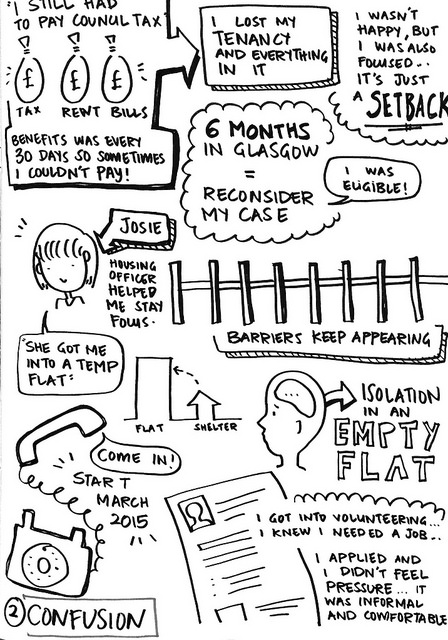 "I STILL HAD
TO PAY COUNCIL TAX
£ £ £
TAX RENT BILLS
BENEFITS WAS EVERY
30 DAYS SO SOMETIMES
I COULDN'T PAY!
I LOST MY
TENANCY
AND EVERYTHING
IN IT
I WASN'T
HAPPY, BUT
I WAS ALSO
FOCUSED..
IT'S JUST
A SETBACK
6 MONTHS
IN GLASGOW
=
RECONSIDER
MY CASE
I WAS
ELIGIBLE!
JOSIE
HOUSING
OFFICER
HELPED
ME STAY
FOCUS.
BARRIERS KEEP APPEARING
"SHE GOT ME
INTO A TEMP
FLAT"
FLAT SHELTER
ISOLATION
IN AN
EMPTY
FLAT
COME IN!
START
MARCH
2015
I GOT INTO VOLUNTEERING...
I KNEW I NEEDED A JOB..
I APPLIED AND
I DIDN'T FEEL
PRESSURE... IT
WAS INFORMAL
AND COMFORTABLE
2 CONFUSION